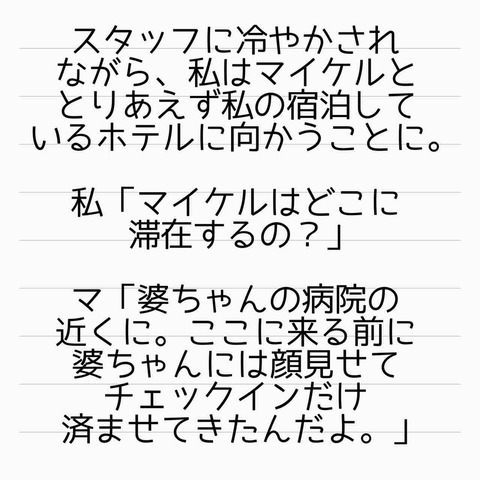 スタッフに冷やかされ
ながら、私はマイケルと
とりあえず私の宿泊して
いるホテルに向かうことに。
私「マイケルはどこに
滞在するの？」
マ「婆ちゃんの病院の
近くに。ここに来る前に
婆ちゃんには顔見せて
チェックインだけ
済ませてきたんだよ。」